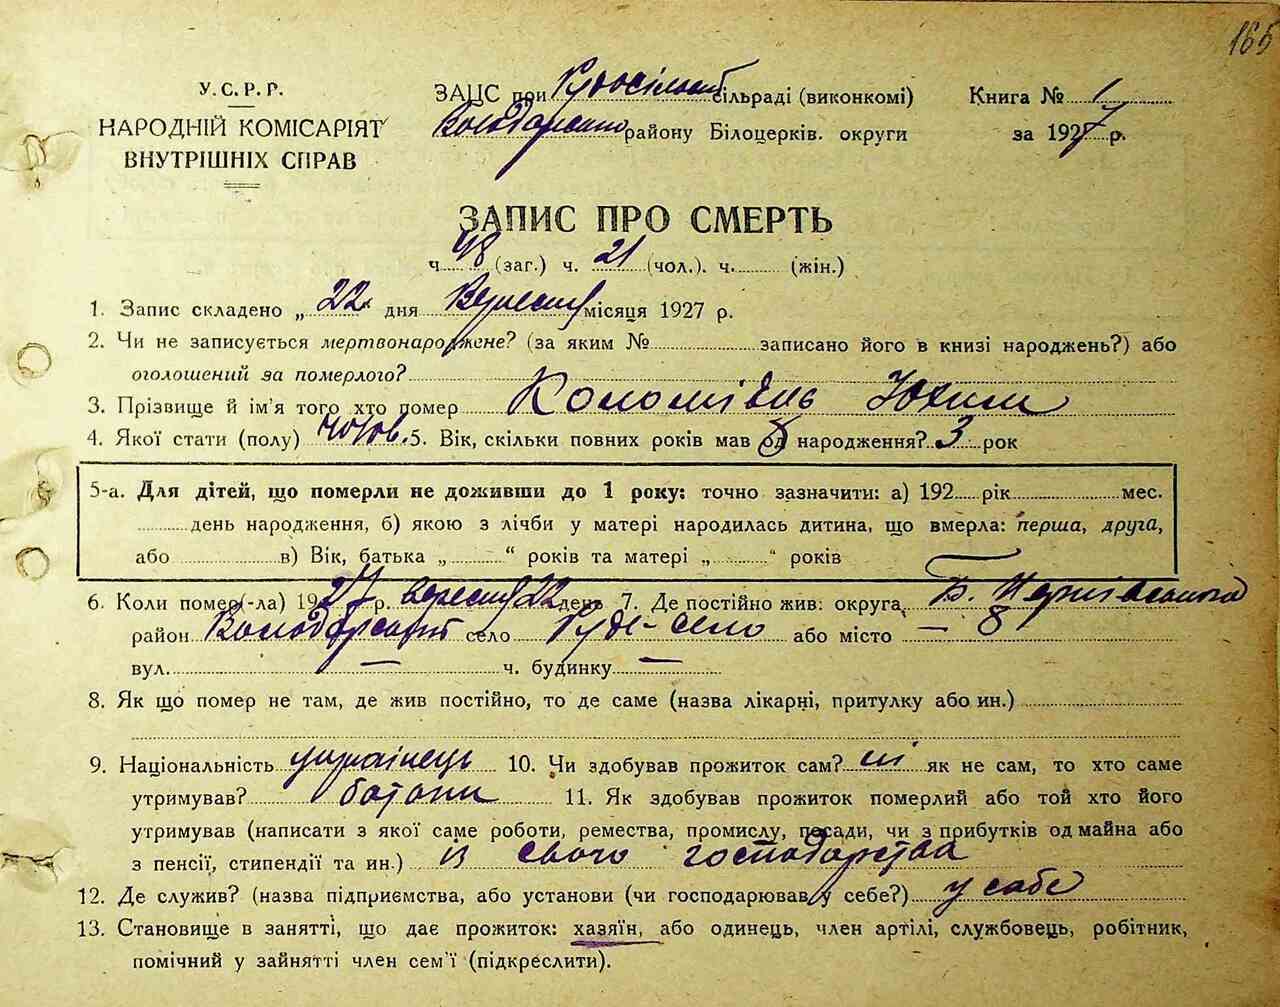 165
У.С.Р.Р.
НАРОДНІЙ КОМІСАРІЯТ
ВНУТРІШНІХ СПРАВ
ЗАЦС при Рудосільській сільраді (виконкомі)
Володарського району Білоцерків. округи
Книга № 1
за 1927 р.
ЗАПИС ПРО СМЕРТЬ
ч. 48 (заг.) ч. 21 (чол.). ч. (жін.)
1. Запис складено „ 22 дня Вересня місяця 1927 р.
2. Чи не записується мертвонароджене? (за яким № записано його в книзі народжень?) або
оголошений за померлого?
3. Прізвище й ім'я того хто помер Коломієць Юхим
4. Якої стати (полу) чолов. 5. Вік, скільки повних років мав од народження? 3 рок
5-а. Для дітей, що померли не доживши до 1 року: точно зазначити: а) 192 рік мес.
день народження, б) якою з лічби у матері народилась дитина, що вмерла: перша, друга,
або в) Вік, батька „ “ років та матері „ “ років
6. Коли помер(-ла) 1927 р. вересня 22 день 7. Де постійно жив: округа Б.
район Володарський село Руде-село або місто —
вул. — ч. будинку —
8. Як що помер не там, де жив постійно, то де саме (назва лікарні, притулку або ин.)
9. Національність українець 10. Чи здобував прожиток сам? ні як не сам, то хто саме
утримував? батьки 11. Як здобував прожиток померлий або той хто його
утримував (написати з якої саме роботи, ремества, промислу, посади, чи з прибутків од майна або
з пенсії, стипендії та ин.) із свого господарства
12. Де служив? (назва підприємства, або установи (чи господарював у себе?) у себе
13. Становище в занятті, що дає прожиток: хазяїн, або одинець, член артілі, службовець, робітник,
помічний у зайнятті член сем'ї (підкреслити).